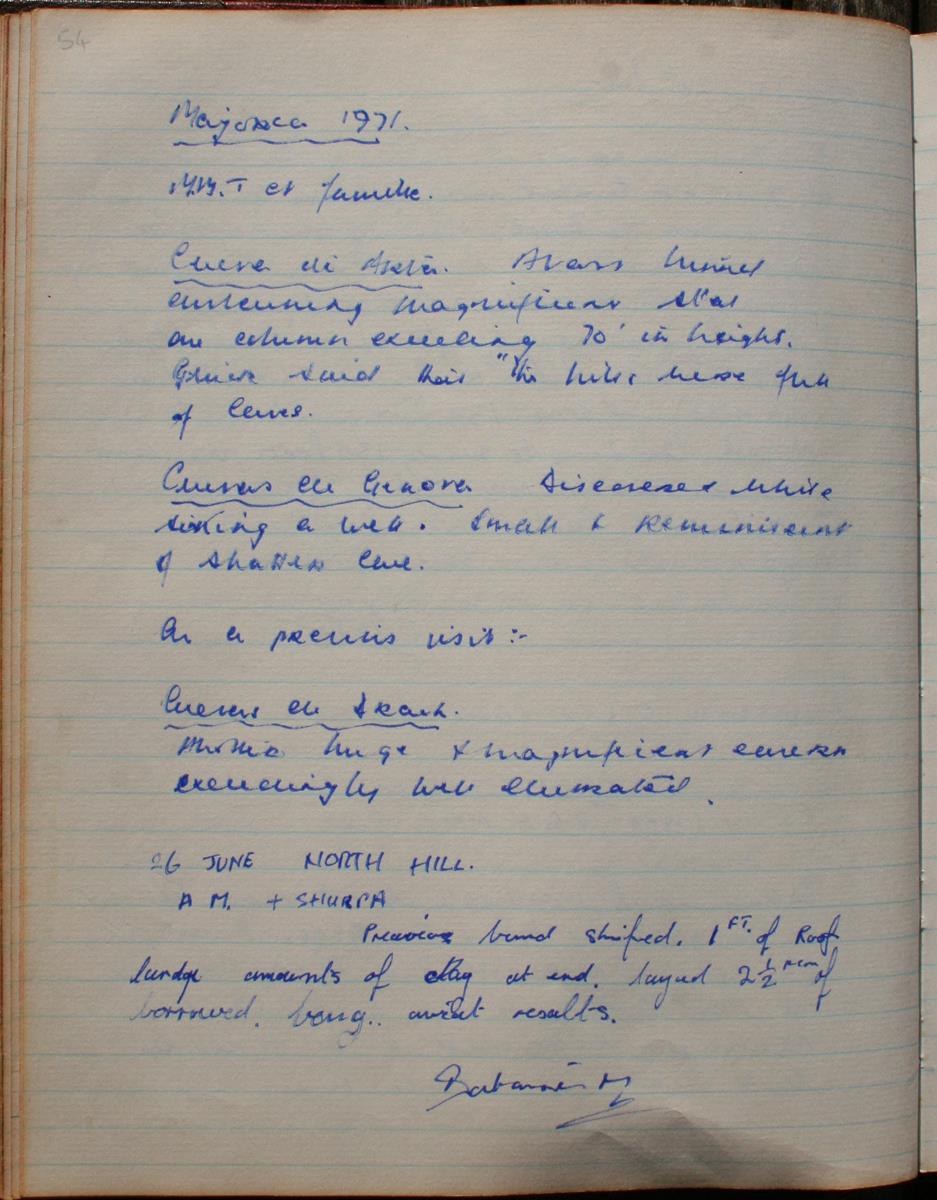 54
Majorca 1971.
M.M.T et famille.
Cueva di Arta. A vast tunnel
containing magnificent stal
one column exceeding 70' in height.
Guide said that "the hills were full
of caves.
Cuevas de Genova Discovered while
sinking a well. Small & Reminiscent
of Shatter Cave.
On a previous visit :-
Cuevas de Drach.
huge & magnificent cavern
exceedingly well illuminated.
26 JUNE NORTH HILL.
A M. + SHURPA
Previous band shifted. 1 FT. of Roof
lardge amounts of clay at end. layed 2 1/2 of
borrowed. bang.. await results.